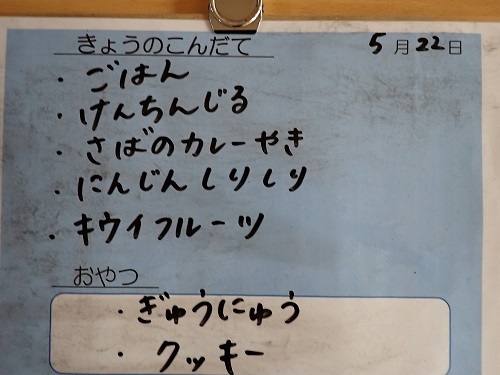 きょうのこんだて 5月22日
・ごはん
・けんちんじる
・さばのカレーやき
・にんじんしりしり
・キウイフルーツ
おやつ
・ぎゅうにゅう
・クッキー